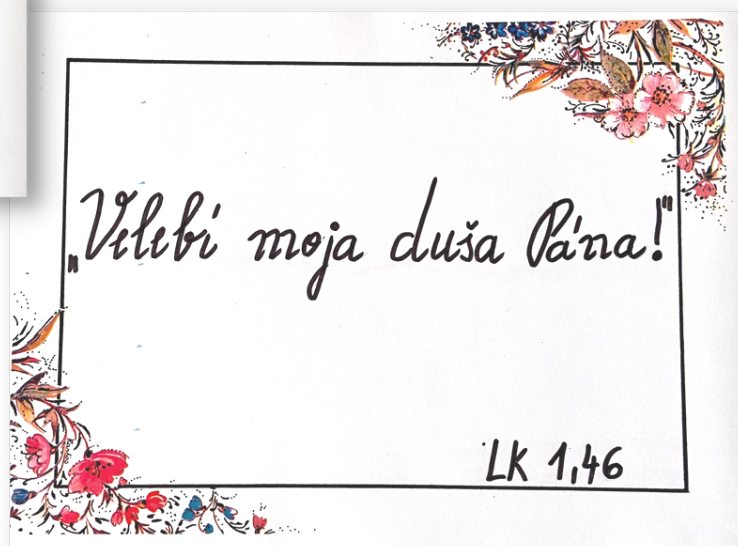 „Velebí moja duša Pána!"
LK 1,46